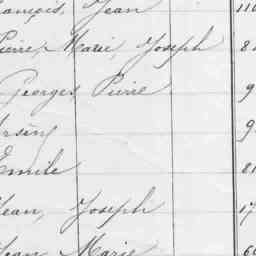 Jean 110
Pierre, Marie, Joseph 8
Georges Pierre 9
9
Emile 8
Jean, Joseph 17
Jean Marie 6